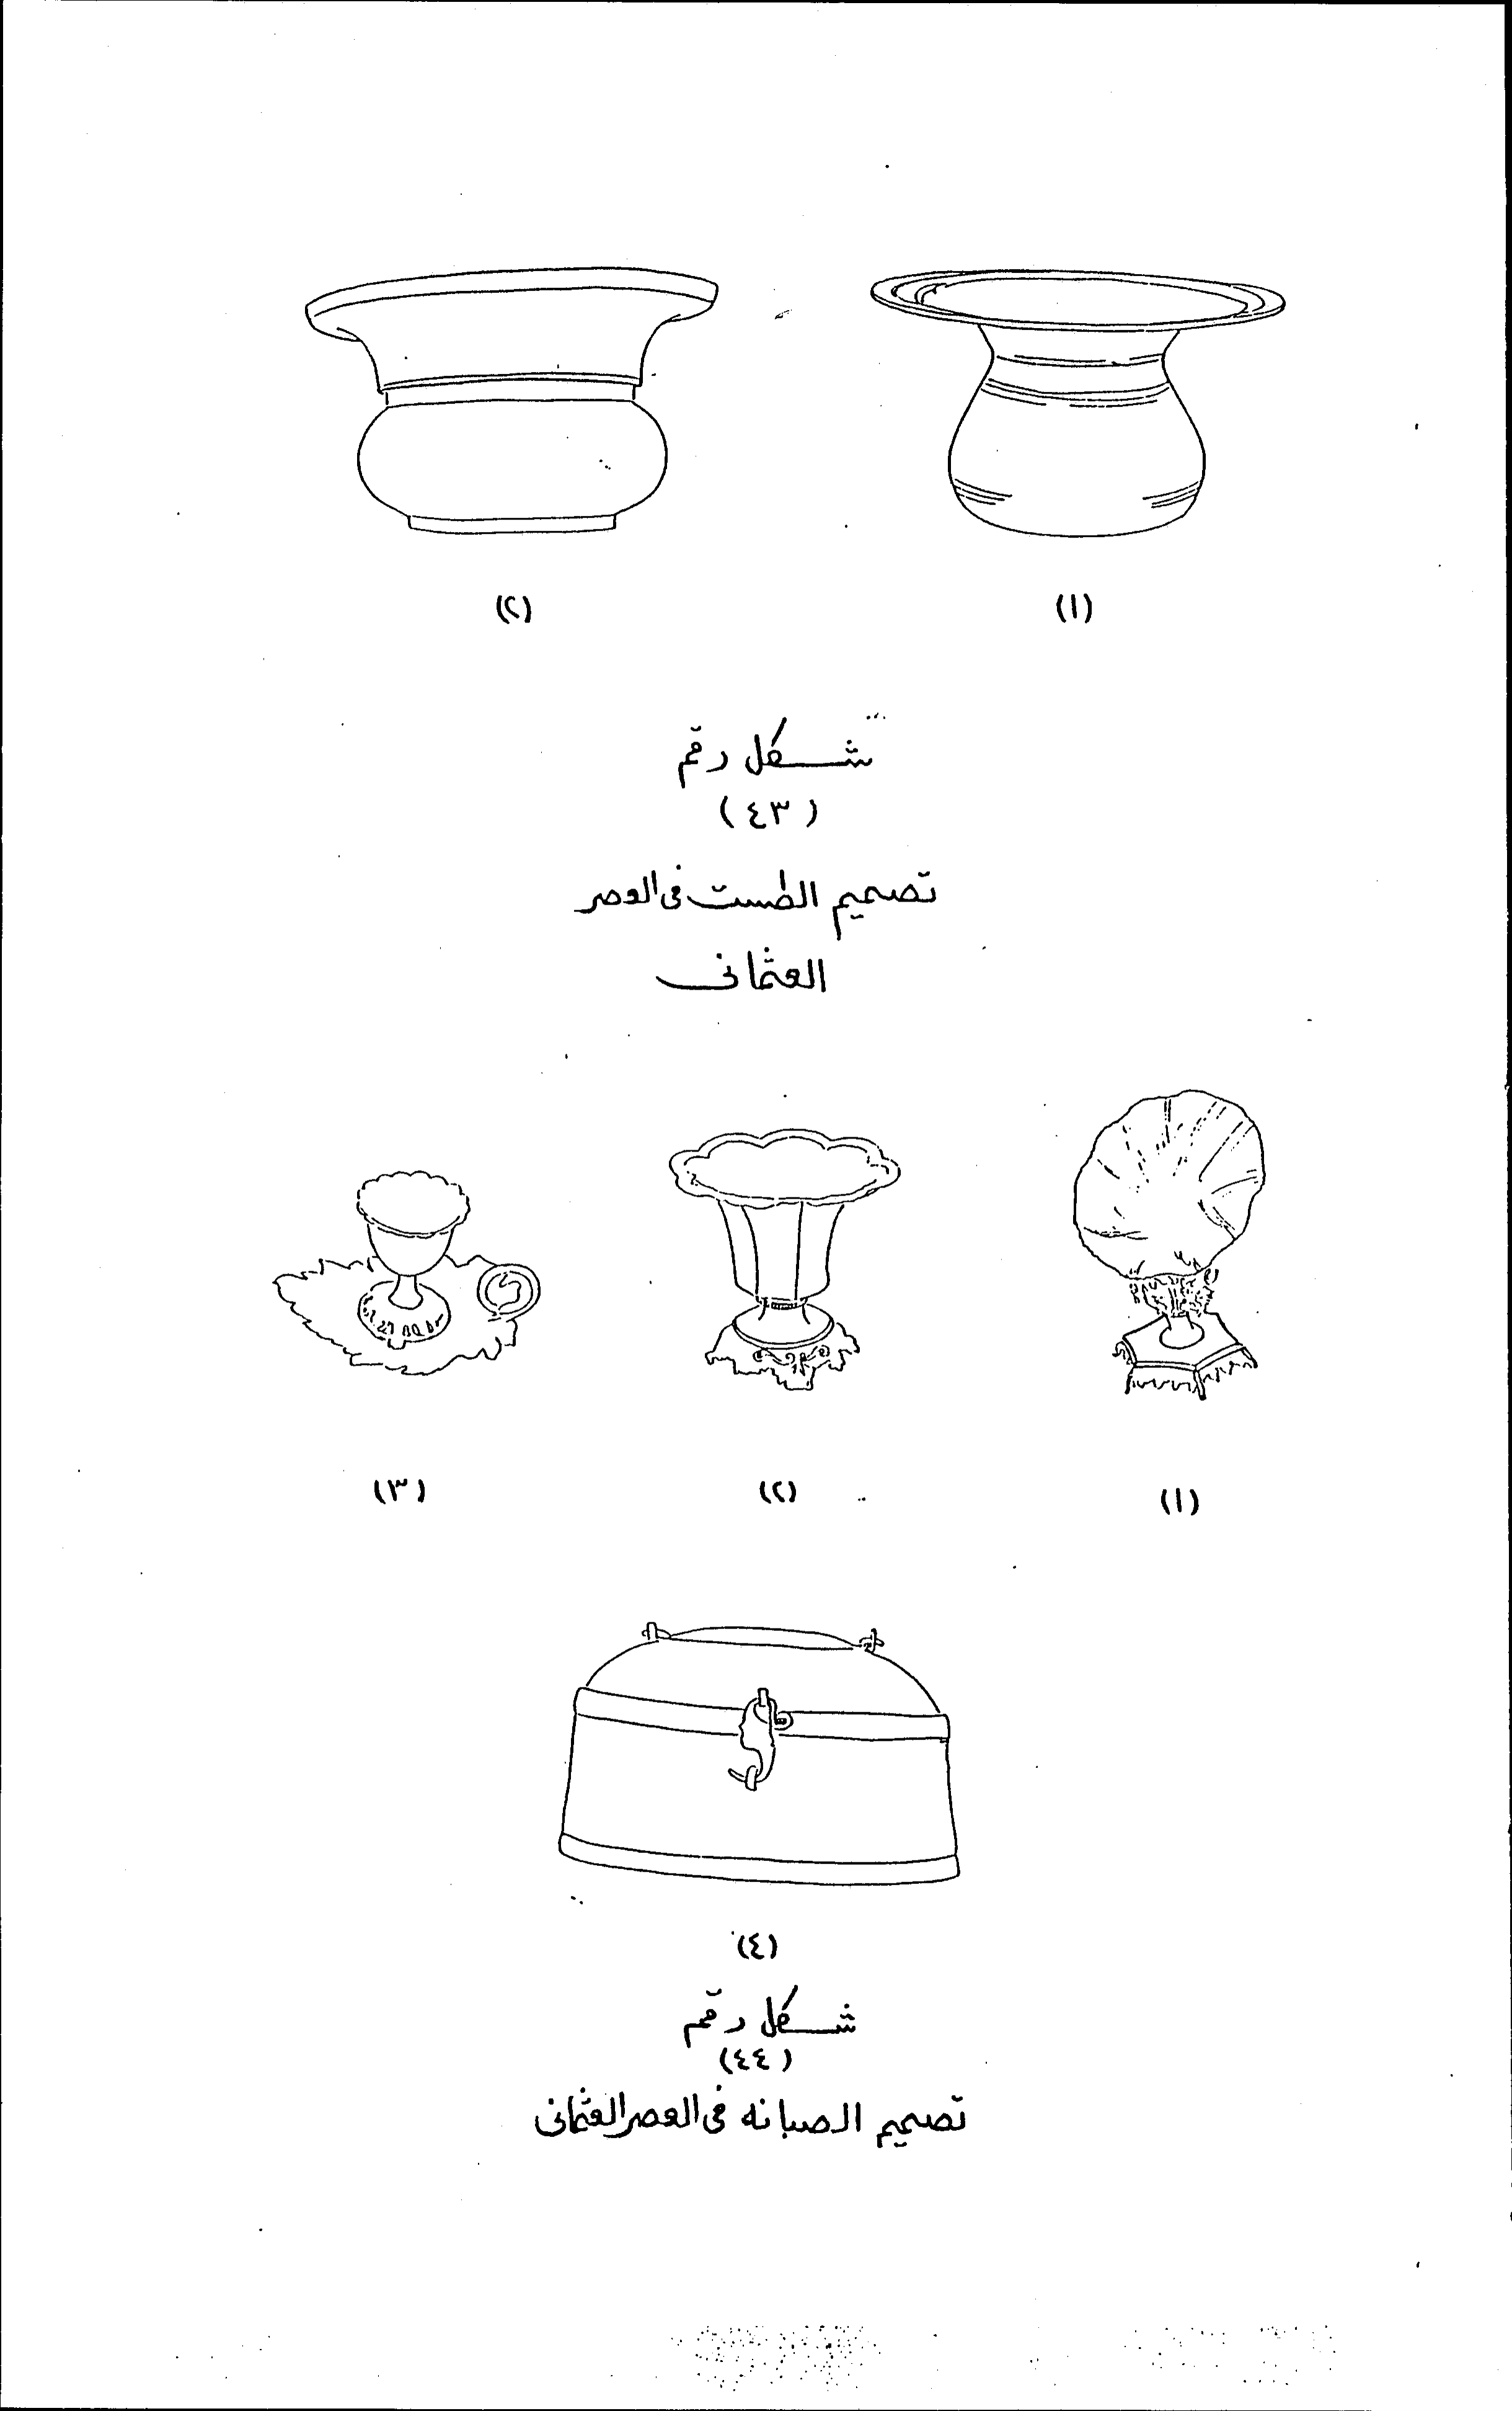 (١) (٢)
شكل رقم
(٤٣)
تصميم الطست فى العصر
العثمانى
(١) (٢) (٣)
(٤)
شكل رقم
(٤٤)
تصميم الصبانه فى العصر العثمانى